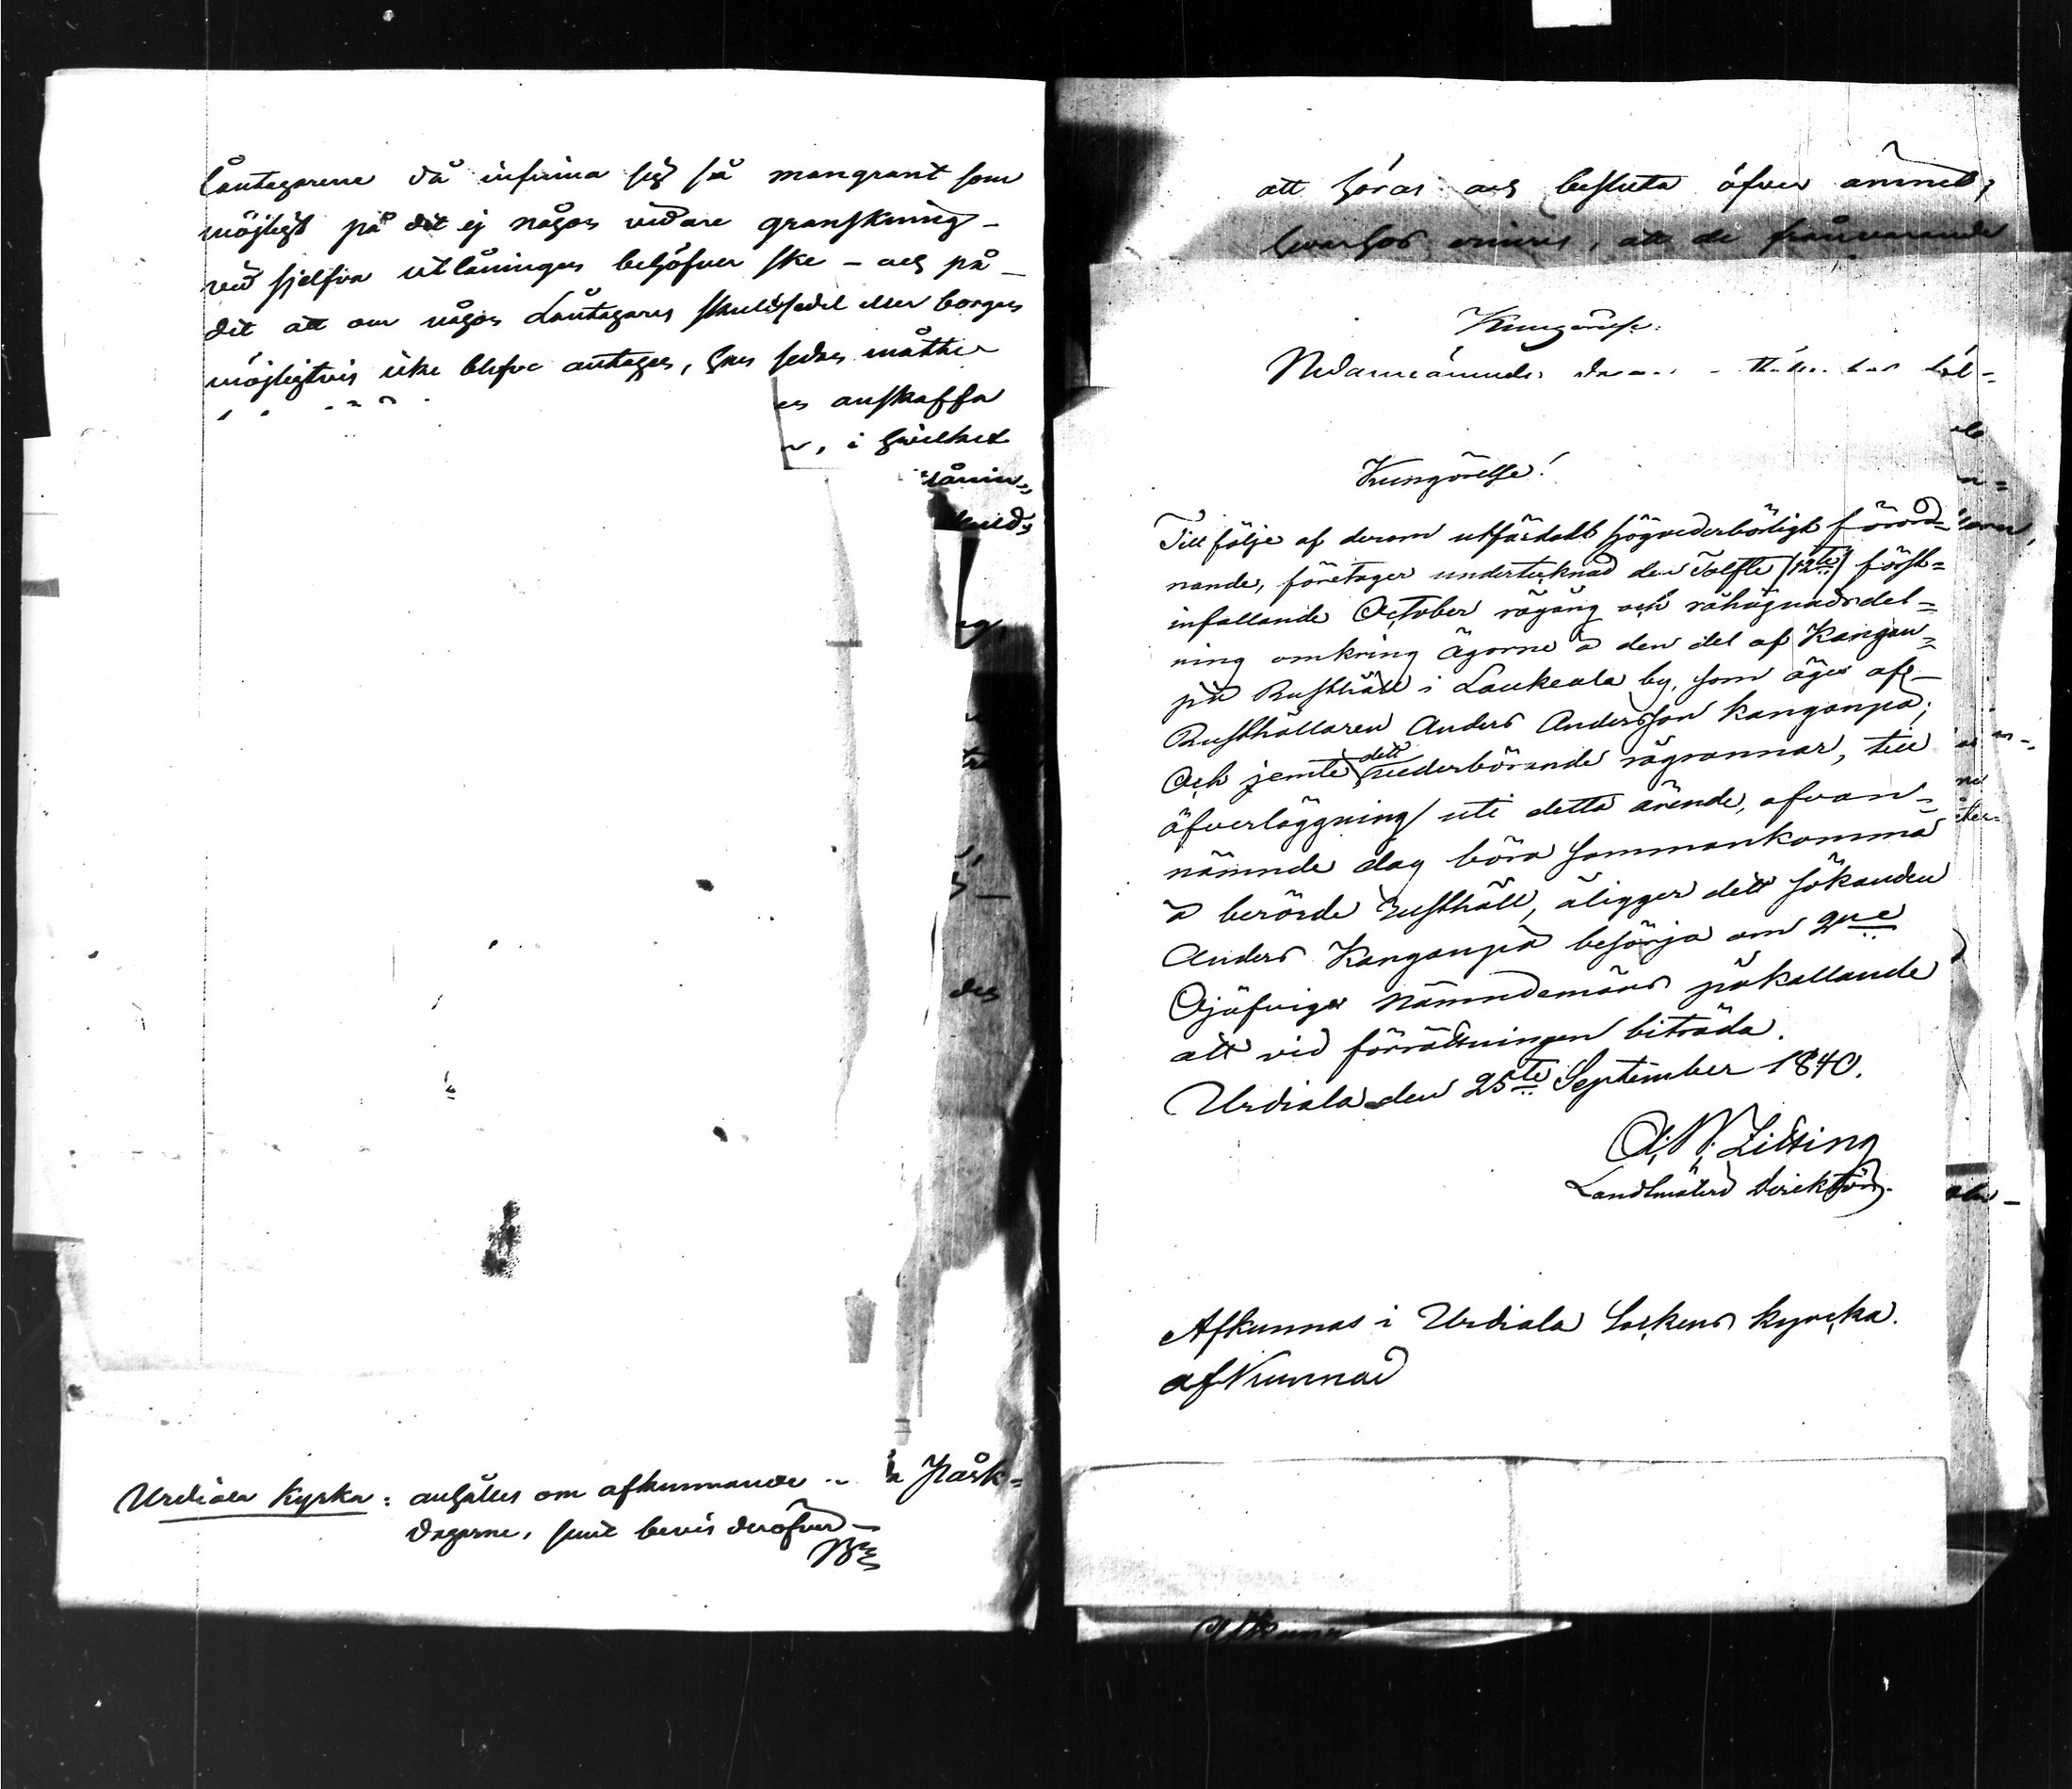 Låntagarene då infinna sig så mangrant som
möjligt på det ej någon vidare granskning -
vid sjelfva utlåningen behöfver ske - och på -
det att om någon Låntagares skuldsedel eller borgen
möjligtvis icke blefve antagen, han sedan måtte
anskaffa
, i hvilket
lånin-
Urdiala Kyrka: anhålles om afkunnande Påsk-
dagarne, samt bevis deröfver -
att höras och besluta öfver ämnet,
hvarhos erinras, att de frånvarande
Kungörelse.
Nedannämnde
Kungörelse!
Till följe af derom utfärdadt högvederbörligt förord-
nande, företager undertecknad den Tolfte (12te) först-
infallande October rågång och råhägnadsdel-
ning omkring Ägorne å den del af Kangan-
pää Rusthåll i Laukeala by, som äges af -
Rusthållaren Anders Andersson Kanganpää;
Och jemte dett vederbörande rågrannar, till
öfverläggning uti detta ärende, ofvan-
nämnde dag böra sammankomma
å berörde Rusthåll, åligger dett sökanden
Anders Kanganpää besörja om 2ne
Ojäfviga Nämndemäns påkallande
att vid förrättningen biträda.
Urdiala den 25te September 1840.
Landtmäteri Direktör.
Afkunnas i Urdiala Sockens kyrcka.
afkunnad